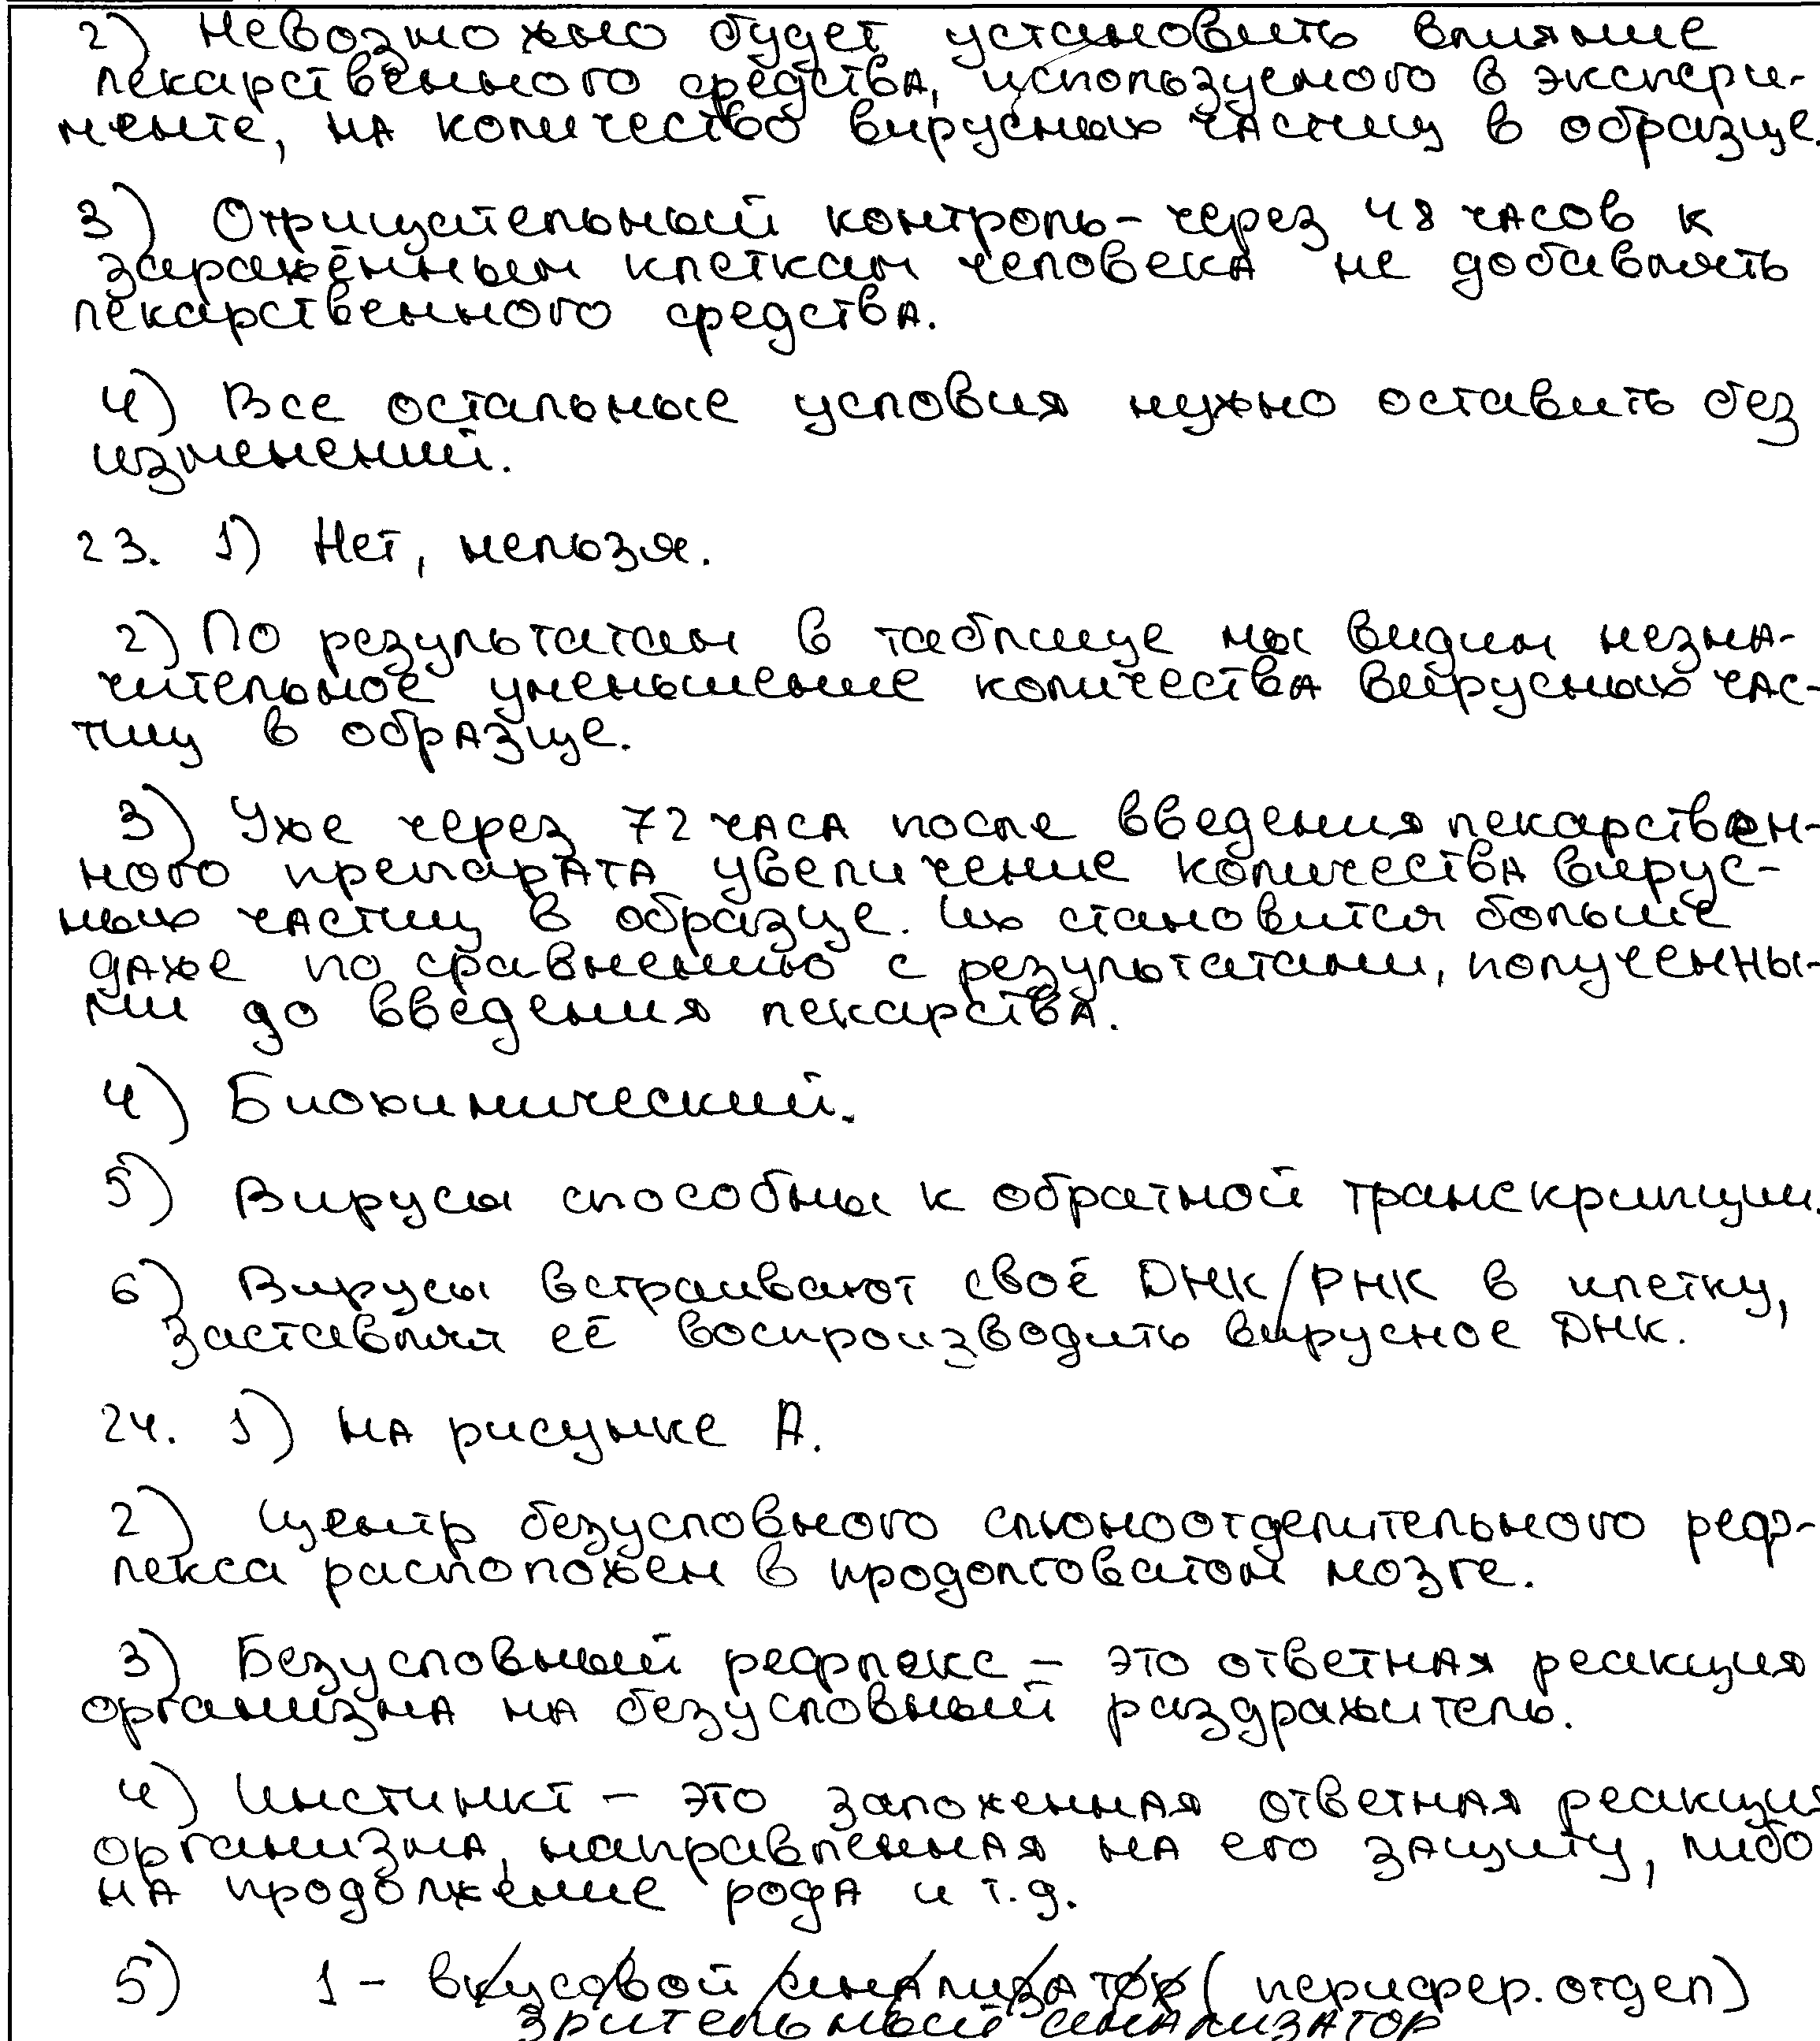 2) Невозможно будет установить влияние
лекарственного средства, используемого в экспери-
менте, на количество вирусных частиц в образце.
3) Отрицательный контроль - через 48 часов к
заражённым клеткам человека не добавлять
лекарственного средства.
4) Все остальные условия нужно оставить без
изменений.
23. 1) Нет, нельзя.
2) По результатам в таблице мы видим незна-
чительное уменьшение количества вирусных час-
тиц в образце.
3) Уже через 72 часа после введения лекарствен-
ного препарата увеличение количества вирус-
ных частиц в образце. Их становится больше
даже по сравнению с результатами, полученны-
ми до введения лекарства.
4) Биохимический.
5) Вирусы способны к обратной транскрипции.
6) Вирусы встраивают своё ДНК/РНК в клетку,
заставляя её воспроизводить вирусное ДНК.
24. 1) на рисунке А.
2) Центр безусловного слюноотделительного реф-
лекса расположен в продолговатом мозге.
3) Безусловный рефлекс - это ответная реакция
организма на безусловный раздражитель.
4) Инстинкт - это заложенная ответная реакция
организма, направленная на его защиту, либо
на продолжение рода и т.д.
5) 1 - вкусовой анализатор (перифер. отдел)
зрительный анализатор